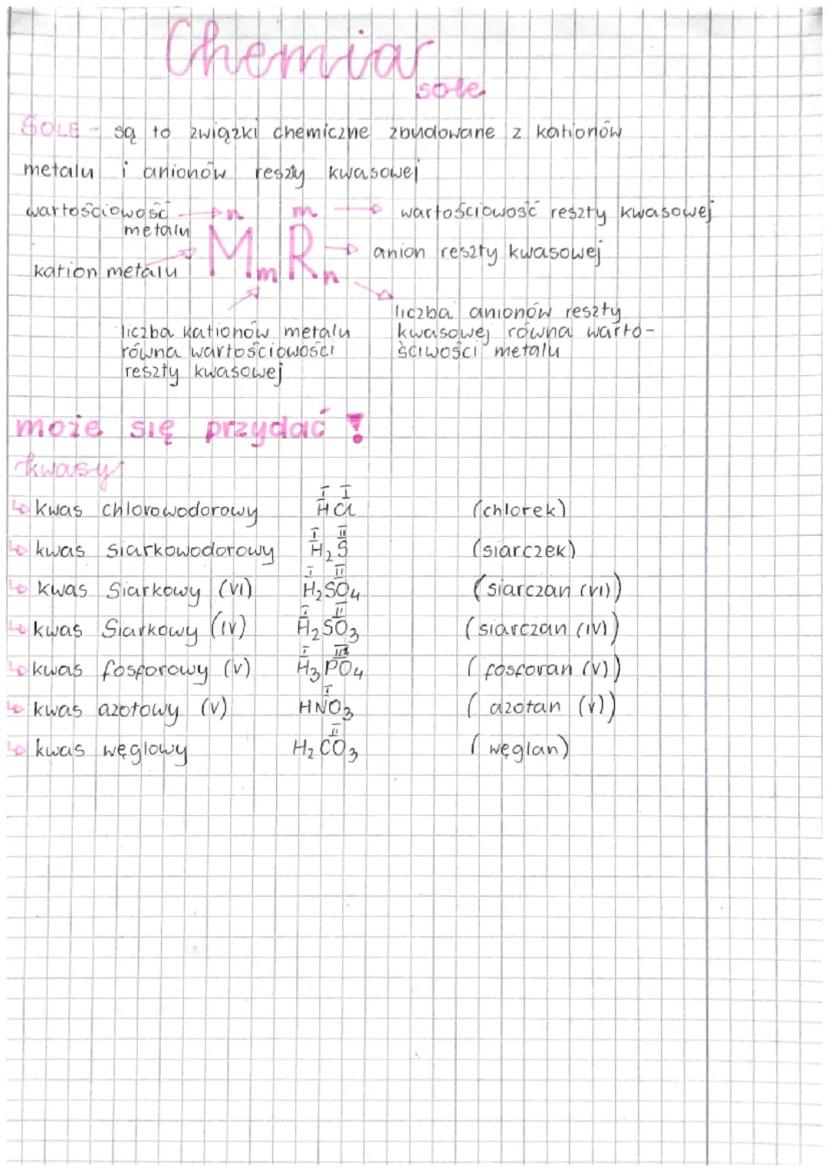 Chemia
sole
SOLE - są to związki chemiczne zbudowane z kationów
metalu i anionów reszty kwasowej
wartościowość n m wartościowość reszty kwasowej
metalu
kation metalu MmRn anion reszty kwasowej
liczba kationów metalu
równa wartościowości
reszty kwasowej
liczba anionów reszty
kwasowej równa warto-
ściwości metalu
może się przydać !
kwasy
↳ kwas chlorowodorowy H^I Cl^I (chlorek)
↳ kwas siarkowodorowy H^I₂S^II (siarczek)
↳ kwas Siarkowy (VI) H^I₂SO₄^II (siarczan (VI))
↳ kwas Siarkowy (IV) H^I₂SO₃^II (siarczan (IV))
↳ kwas fosforowy (V) H^I₃PO₄^III (fosforan (V))
↳ kwas azotowy (V) HNO₃^I (azotan (V))
↳ kwas węglowy H₂CO₃^II (węglan)